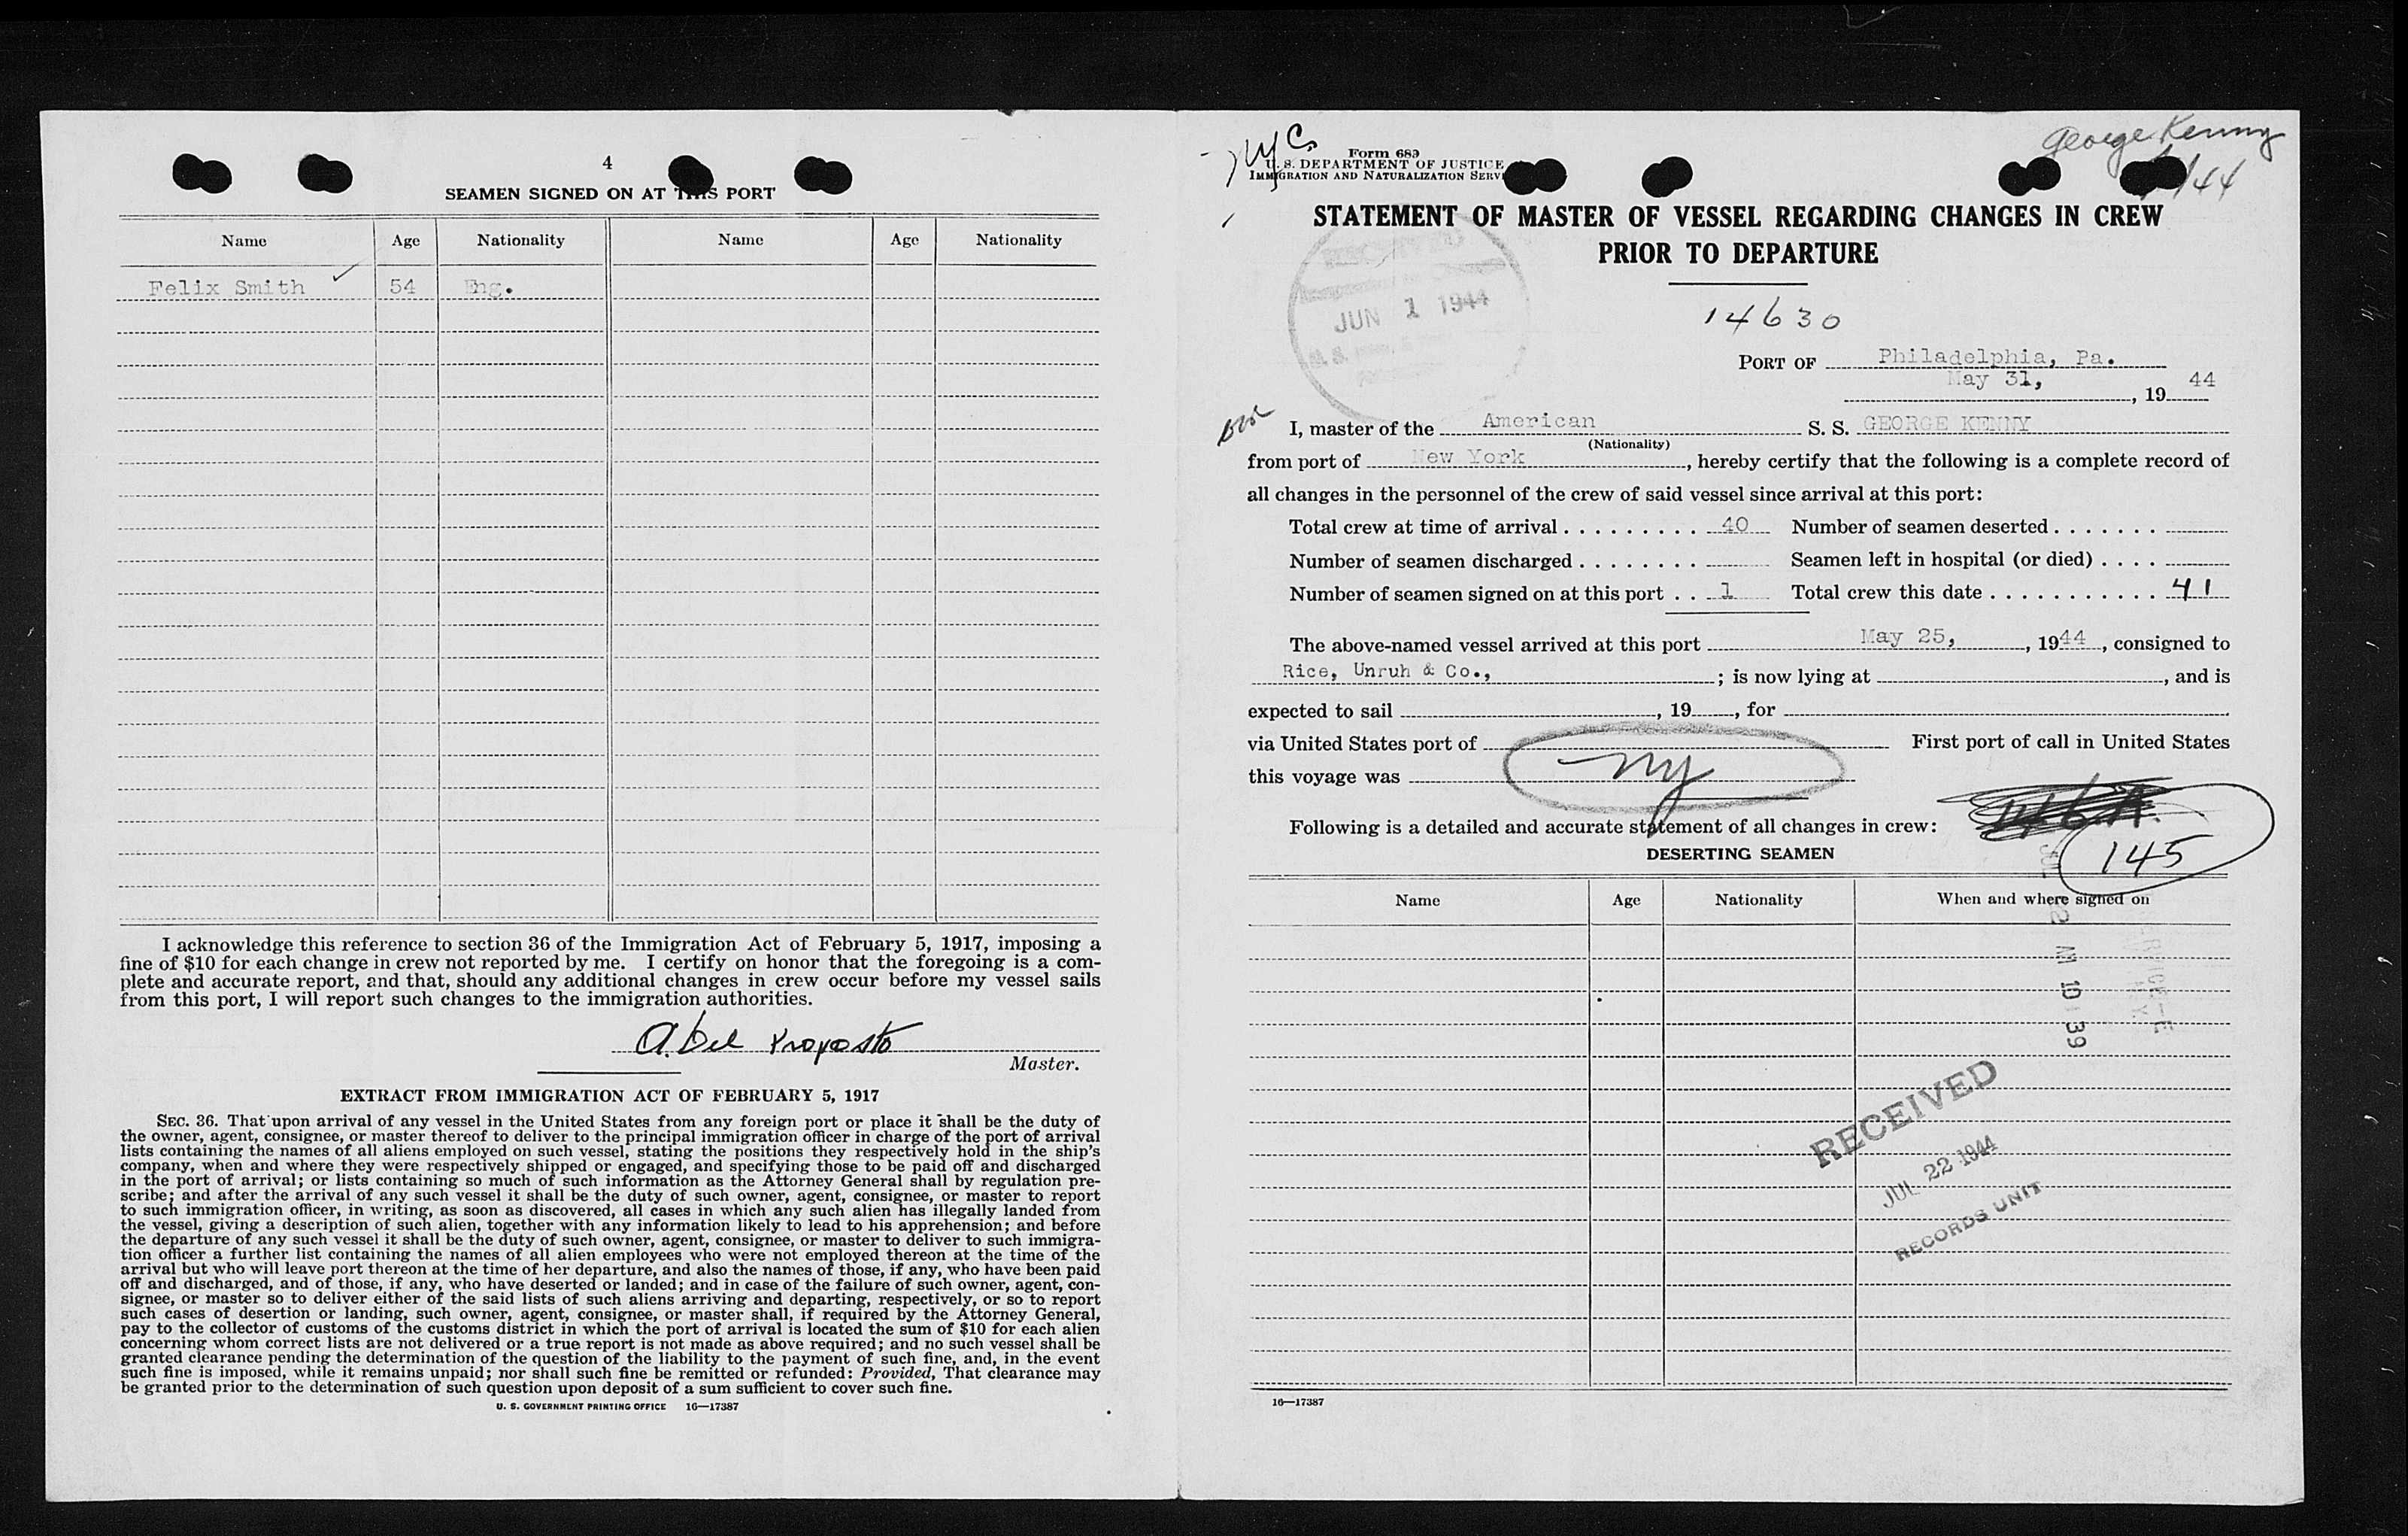 4
SEAMEN SIGNED ON AT THIS PORT
Name Age Nationality Name Age Nationality
Felix Smith 54 Eng.
I acknowledge this reference to section 36 of the Immigration Act of February 5, 1917, imposing a
fine of $10 for each change in crew not reported by me. I certify on honor that the foregoing is a com-
plete and accurate report, and that, should any additional changes in crew occur before my vessel sails
from this port, I will report such changes to the immigration authorities.
Abel Proposto
Master.
EXTRACT FROM IMMIGRATION ACT OF FEBRUARY 5, 1917
SEC. 36. That upon arrival of any vessel in the United States from any foreign port or place it shall be the duty of
the owner, agent, consignee, or master thereof to deliver to the principal immigration officer in charge of the port of arrival
lists containing the names of all aliens employed on such vessel, stating the positions they respectively hold in the ship's
company, when and where they were respectively shipped or engaged, and specifying those to be paid off and discharged
in the port of arrival; or lists containing so much of such information as the Attorney General shall by regulation pre-
scribe; and after the arrival of any such vessel it shall be the duty of such owner, agent, consignee, or master to report
to such immigration officer, in writing, as soon as discovered, all cases in which any such alien has illegally landed from
the vessel, giving a description of such alien, together with any information likely to lead to his apprehension; and before
the departure of any such vessel it shall be the duty of such owner, agent, consignee, or master to deliver to such immigra-
tion officer a further list containing the names of all alien employees who were not employed thereon at the time of the
arrival but who will leave port thereon at the time of her departure, and also the names of those, if any, who have been paid
off and discharged, and of those, if any, who have deserted or landed; and in case of the failure of such owner, agent, con-
signee, or master so to deliver either of the said lists of such aliens arriving and departing, respectively, or so to report
such cases of desertion or landing, such owner, agent, consignee, or master shall, if required by the Attorney General,
pay to the collector of customs of the customs district in which the port of arrival is located the sum of $10 for each alien
concerning whom correct lists are not delivered or a true report is not made as above required; and no such vessel shall be
granted clearance pending the determination of the question of the liability to the payment of such fine, and, in the event
such fine is imposed, while it remains unpaid; nor shall such fine be remitted or refunded: Provided, That clearance may
be granted prior to the determination of such question upon deposit of a sum sufficient to cover such fine.
U. S. GOVERNMENT PRINTING OFFICE 16—17387
George Kenny
/44
NYC
Form 689
U. S. DEPARTMENT OF JUSTICE
IMMIGRATION AND NATURALIZATION SERVI
STATEMENT OF MASTER OF VESSEL REGARDING CHANGES IN CREW
PRIOR TO DEPARTURE
JUN 1 1944
14630
PORT OF Philadelphia, Pa.
May 31, , 19 44
I, master of the American S. S. GEORGE KENNY
(Nationality)
from port of New York , hereby certify that the following is a complete record of
all changes in the personnel of the crew of said vessel since arrival at this port:
Total crew at time of arrival 40 Number of seamen deserted
Number of seamen discharged Seamen left in hospital (or died)
Number of seamen signed on at this port 1 Total crew this date 41
The above-named vessel arrived at this port May 25, , 1944 , consigned to
Rice, Unruh & Co., ; is now lying at , and is
expected to sail , 19 , for
via United States port of First port of call in United States
this voyage was NY
Following is a detailed and accurate statement of all changes in crew:
145
DESERTING SEAMEN
Name Age Nationality When and where signed on
22 AM 10 39
RECEIVED
JUL 22 1944
RECORDS UNIT
16—17387